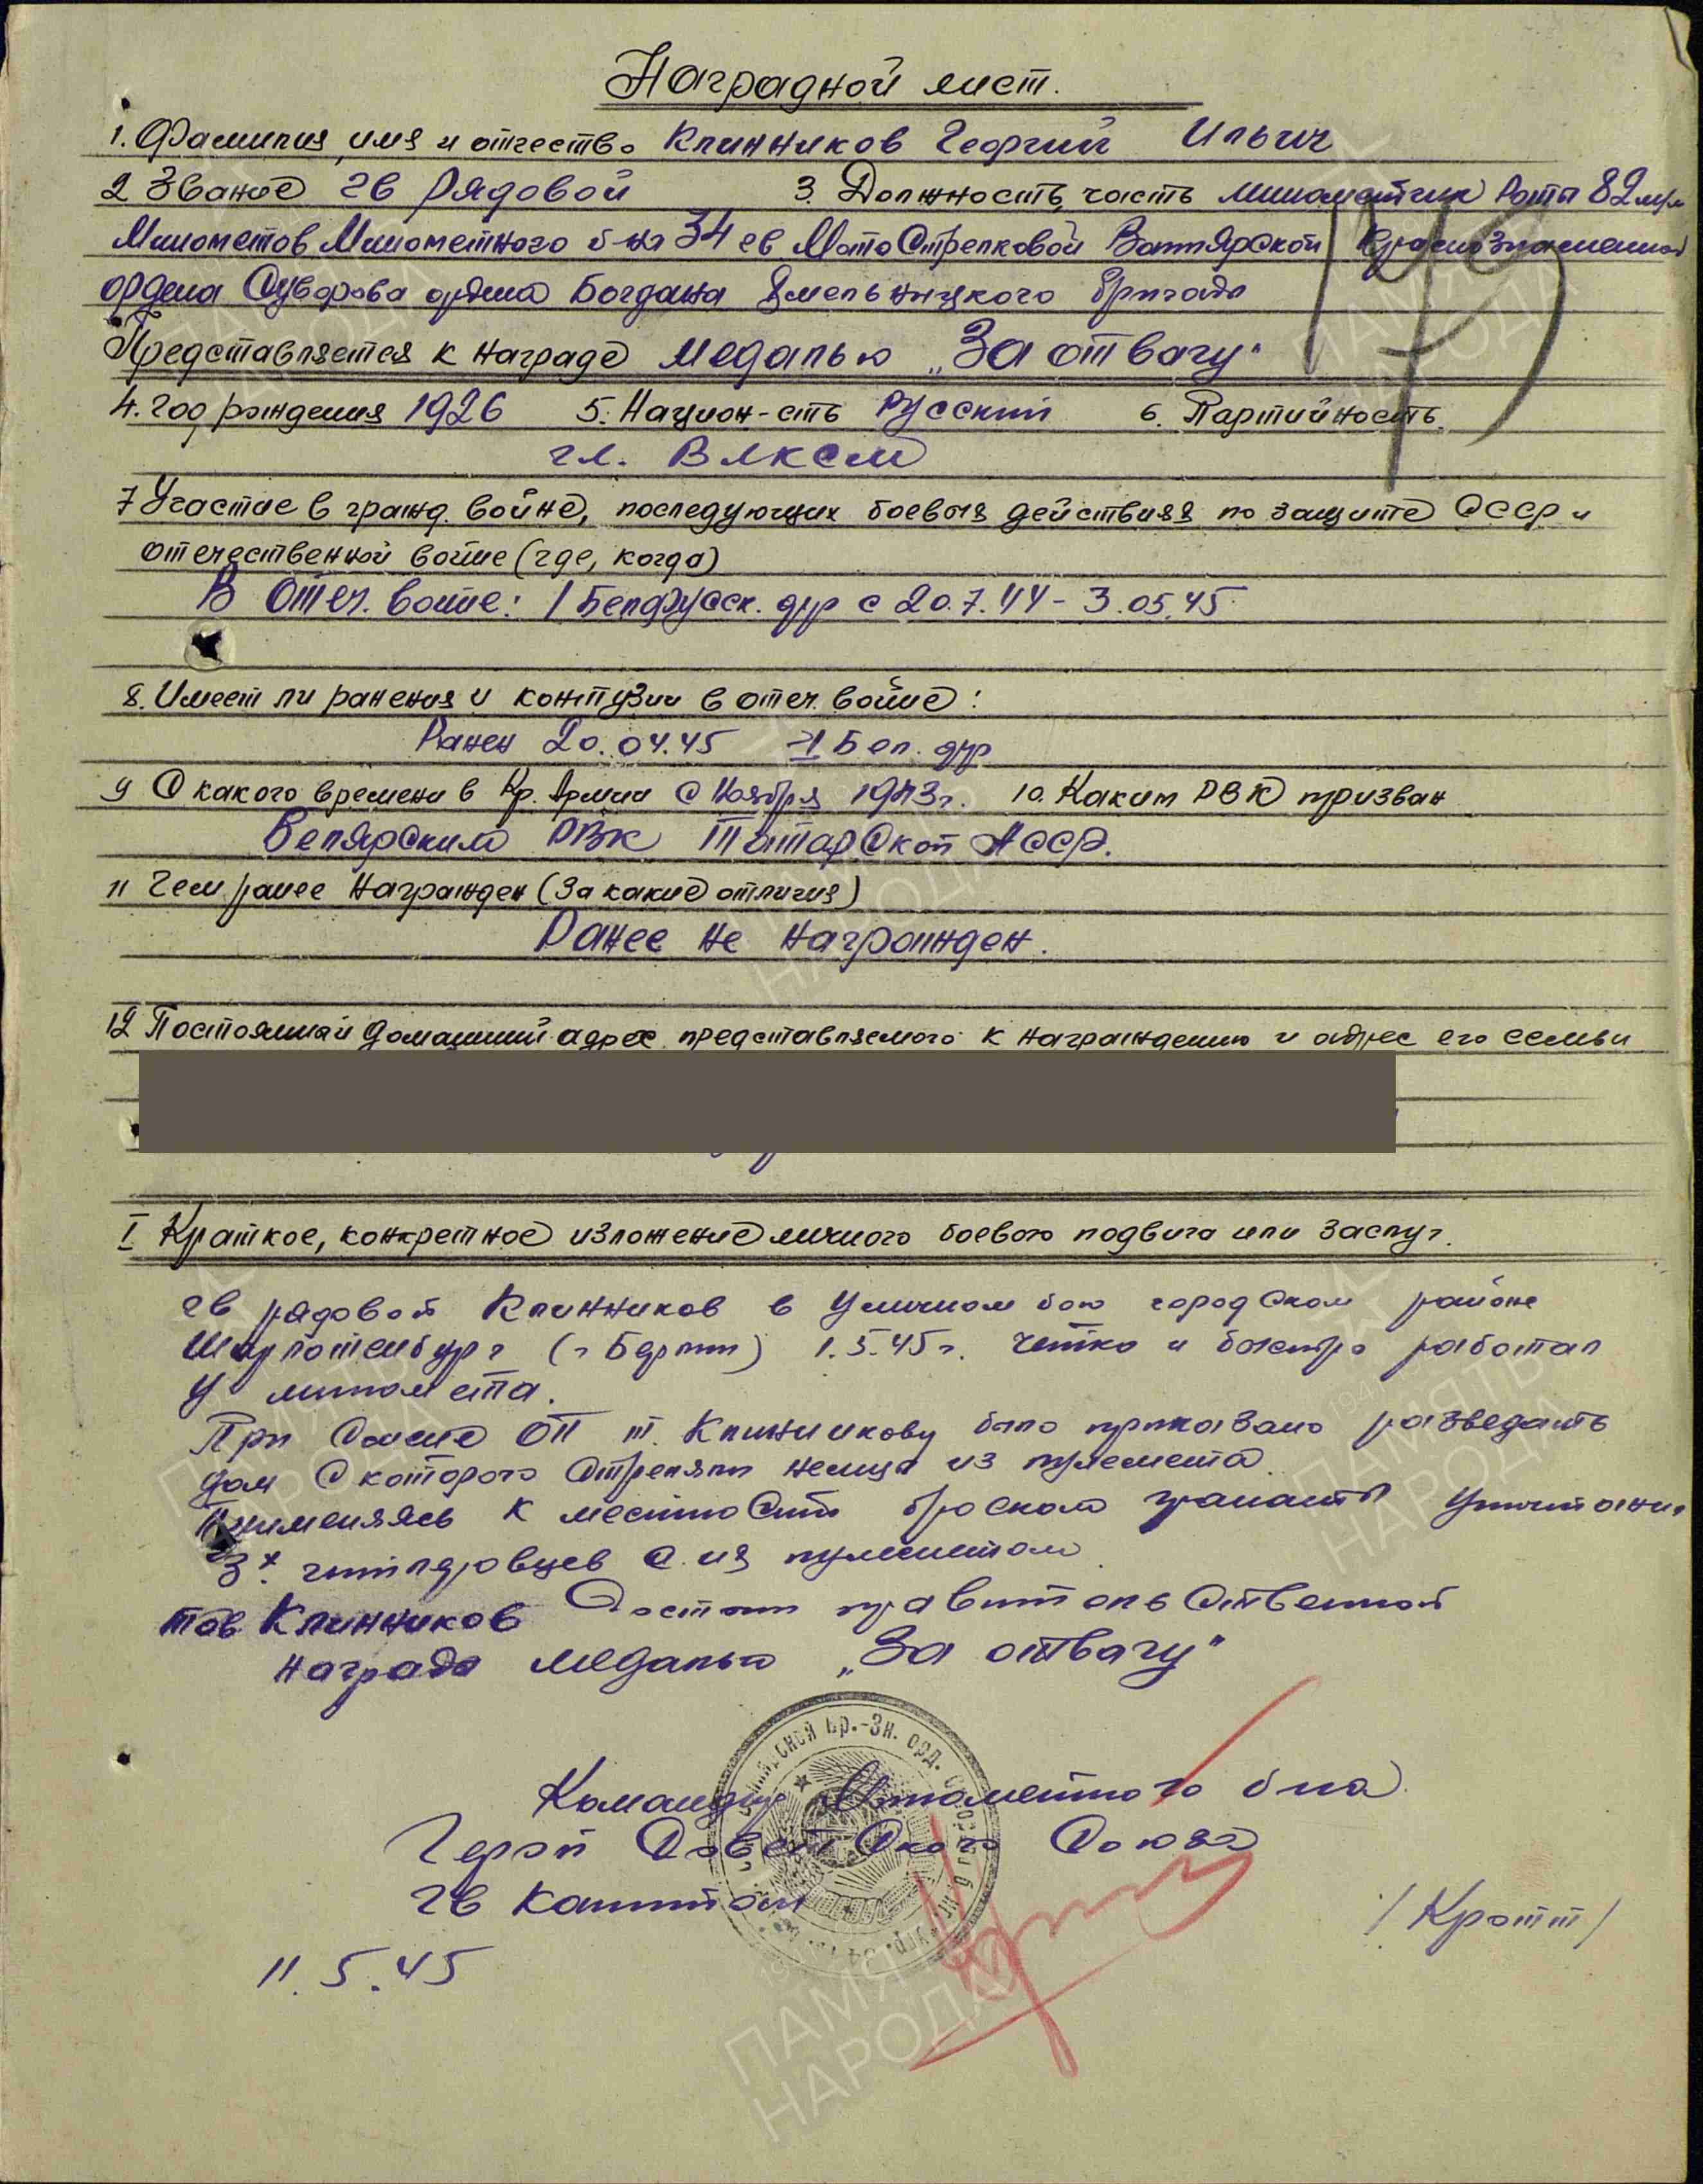 Наградной лист.
1. Фамилия, имя и отчество Клинников Георгий Ильич
2 Звание гв рядовой 3. Должность, часть минометчик роты 82 м/м
Минометов Минометного б-на 34 гв МотоСтрелковой Вапнярской Краснознаменной
ордена Суворова ордена Богдана Хмельницкого бригады
Представляется к награде медалью „За отвагу"
4. год рождения 1926 5. Национ-сть Русский 6. Партийность.
чл. ВЛКСМ
7 Участие в гражд. войне, последующих боевых действиях по защите СССР и
отечественной войне (где, когда)
В Отеч. войне: 1 Белорусск. фр с 20.7.44 - 3.05.45
8. Имеет ли ранения и контузии в отеч. войне:
Ранен 20.04.45 1 Бел. фр
9 С какого времени в Кр. Армии с Ноября 1943г. 10. Каким РВК призван
Билярским РВК Татарской АССР.
11 Чем ранее награжден (За какие отличия)
Ранее не награжден.
12 Постоянный домашний адрес представляемого к награждению и адрес его семьи
I Краткое, конкретное изложение личного боевого подвига или заслуг.
гв рядовой Клинников в уличном бою городском районе
Шарлотенбург (г Берлин) 1.5.45г. четко и быстро работал
у миномета.
При смене ОП т. Клинникову было приказано разведать
дом с которого стреляли немцы из пулемета.
Применяясь к местности броском гранаты уничтожил
3х гитлеровцев с их пулеметом.
тов Клинников Достоин правительственной
награды медалью „За отвагу"
Командир Минометного б-на
Герой Советского Союза
гв капитан
/Кротт/
11.5.45
ПАМЯТЬ НАРОДА